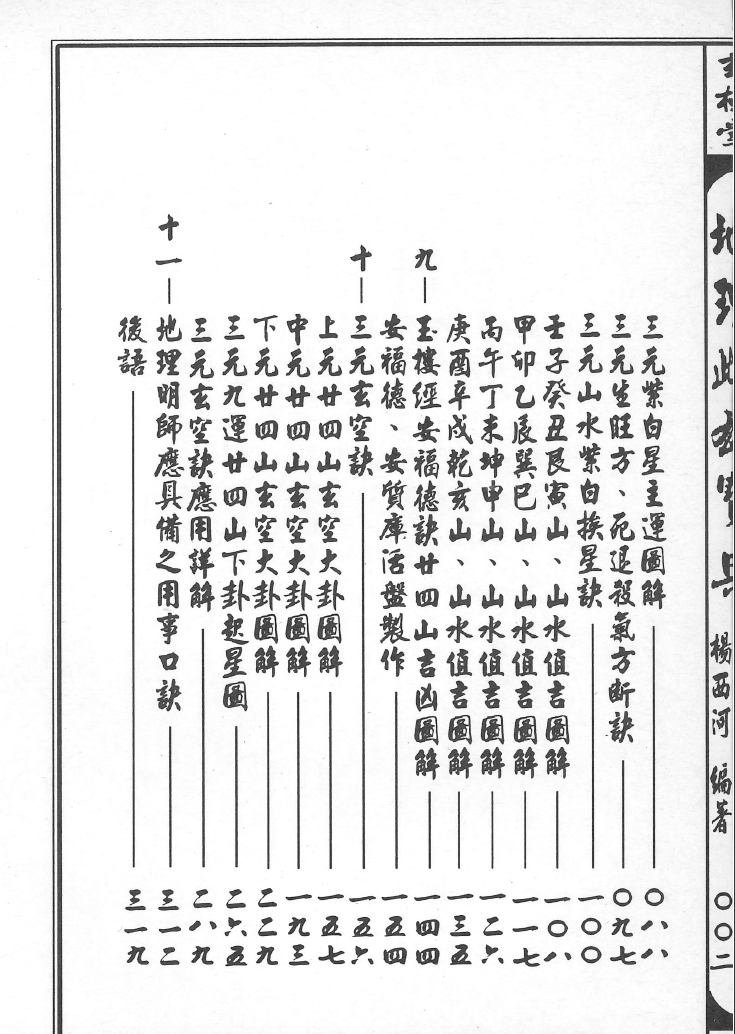 地理 楊西河 編著 〇〇二
三元紫白星主運圖解 〇八八
三元生旺方、死退殺氣方斷訣 〇九七
三元山水紫白挨星訣 一〇〇
壬子癸丑艮寅山、山水值吉圖解 一〇八
甲卯乙辰巽巳山、山水值吉圖解 一一七
丙午丁未坤申山、山水值吉圖解 一二六
庚酉辛戌乾亥山、山水值吉圖解 一三五
九 玉樓經安福德訣廿四山吉凶圖解 一四四
安福德、安質庫活盤製作 一五四
十 三元玄空訣 一五六
上元廿四山玄空大卦圖解 一五七
中元廿四山玄空大卦圖解 一九三
下元廿四山玄空大卦圖解 二二九
三元九運廿四山下卦起星圖 二六五
三元玄空訣應用詳解 二八九
十一 地理明師應具備之用事口訣 三一二
後語 三一九